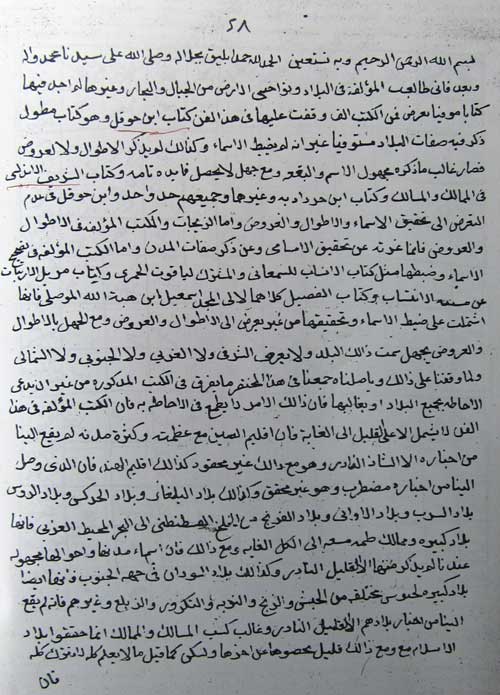 ٢٨
بسم الله الرحمن الرحيم وبه نستعين الحمد لله حمدا يليق بجلاله وصلى الله على سيدنا محمد واله
وبعد فاني طالعت الكتب المؤلفة في البلاد ونواحي الارض من الجبال والبحار وغيرها لم اجد فيها
كتابا موفيا بغرضي فمن الكتب التي وقفت عليها في هذا الفن كتاب ابن حوقل وهو كتاب مطول
ذكر فيه صفات البلاد مستوفيا غير انه لم يضبط الاسماء وكذلك لم يذكر الاطوال ولا العروض
فصار غالب ما ذكره مجهول الاسم والبقعة ومع جهل ذلك لا يحصل فايدة تامة وكتاب الشريف الادريسي
في الممالك والمسالك وكتاب ابن خردادبه وغيرهما وجميعهم حذوا حذو ابن حوقل في عدم
التعرض الى تحقيق الاسماء والاطوال والعروض واما الزيجات والكتب المؤلفة في الاطوال
والعروض فانها عرية عن تحقيق الاسامي وعن ذكر صفات المدن واما الكتب المؤلفة في تصحيح
الاسماء وضبطها مثل كتاب الانساب للسمعاني والمشترك لياقوت الحموي وكتاب مزيل الارتياب
عن مشتبه الانتساب وكتاب الفيصل كلاهما لابي المجد اسمعيل ابن هبة الله الموصلي فانها
اشتملت على ضبط الاسماء وتحقيقها من غير تعرض الى الاطوال والعروض ومع الجهل بالاطوال
والعروض يجهل سمت ذلك البلد ولا يعرف الشرقي ولا الغربي ولا الجنوبي ولا الشمالي
ولما وقفنا على ذلك وتاملناه جمعنا في هذا المختصر ما تفرق في الكتب المذكورة من غير ان ندعي
الاحاطة بجميع البلاد او بغالبها فان ذلك الامر لا يطمع في الاحاطة به فان الكتب المؤلفة في هذا
الفن لا يشمل الا على القليل الى الغاية فان اقليم الصين مع عظمته وكثرة مدنه لم يقع الينا
من اخباره الا الشاذ النادر وهو مع ذلك غير محقق وكذلك اقليم الهند فان الذي وصل
الينا من اخباره مضطرب وهو غير محقق وكذلك بلاد البلغار وبلاد الجركس وبلاد الروس
وبلاد السرب وبلاد الاولاق وبلاد الفرنج من الخليج القسطنطيني الى البحر المحيط الغربي فانها
بلاد كبيرة وممالك عظيمة متسعة الى الغاية ومع ذلك فان اسماء مدنها واحوالها مجهولة
عندنا لم يذكر منها الا القليل النادر وكذلك بلاد السودان في جهة الجنوب فانها ايضا
بلاد كبيرة لجنوس مختلفة من الحبش والزنج والنوبة والتكرور والزيلع وغيرهم فانه لم يقع
الينا من اخبار بلادهم الا القليل النادر وغالب كتب المسالك والممالك انما حققوا بلاد
الاسلام ومع ذلك فلم يحصوها عن اخرها ولكن كما قيل ما لا يعلم كله لا يترك كله
فان